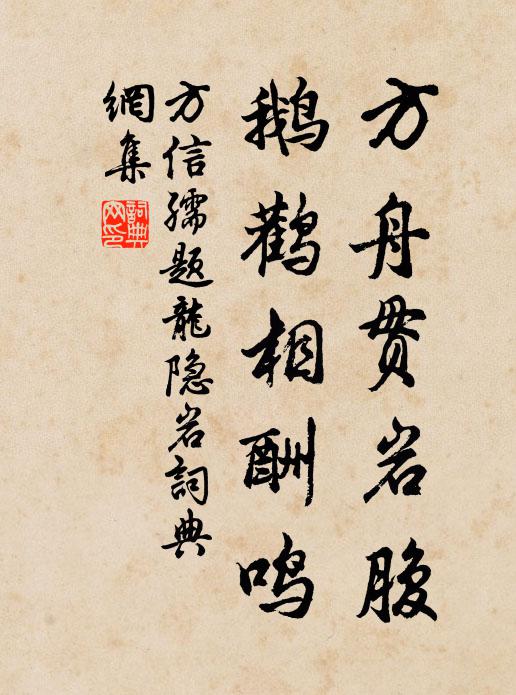 方舟贯岩腹
鹅鹳相酬鸣
方信孺题龍隐岩詞典
網集
詞典
网印